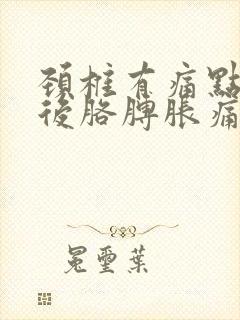 頚椎有痛點
後胳膊脹痛
冕璽葉